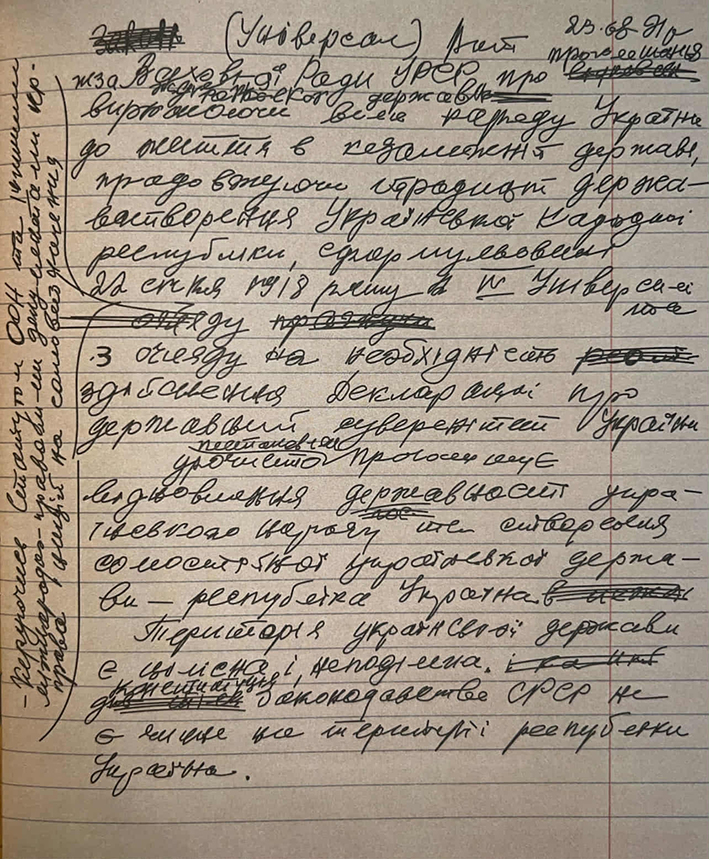 (Універсал) Акт 23.08.91р
проголошення
Верховної Ради УРСР про
держави
волю народу України
до життя в незалежній державі,
продовжуючи традиції держа-
вотворення Української Народної
республіки, сформульовані
22 січня 1918 року в IV Універсалі
та
з огляду на необхідність
здійснення Декларації про
державний суверенітет України
урочисто проголошує
відновлення державності укра-
їнського народу та створення
самостійної української держа-
ви — республіка Україна
Територія української держави
є цілісна і неподільна.
Конституція Законодавство СРСР не
є чинне на території республіки
Україна.
- керуючись Статутом ООН та іншими
міжнародно-правовими документами про
права націй на самовизначення